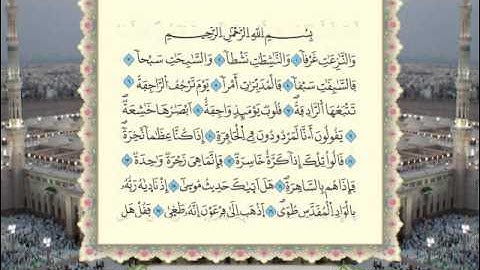 بِسْمِ اللَّهِ الرَّحْمَٰنِ الرَّحِيمِ
وَالنَّٰزِعَٰتِ غَرْقًا ١ وَالنَّٰشِطَٰتِ نَشْطًا ٢ وَالسَّٰبِحَٰتِ سَبْحًا ٣
فَالسَّٰبِقَٰتِ سَبْقًا ٤ فَالْمُدَبِّرَٰتِ أَمْرًا ٥ يَوْمَ تَرْجُفُ الرَّاجِفَةُ ٦
تَتْبَعُهَا الرَّادِفَةُ ٧ قُلُوبٌ يَوْمَئِذٍ وَاجِفَةٌ ٨ أَبْصَٰرُهَا خَٰشِعَةٌ ٩
يَقُولُونَ أَءِنَّا لَمَرْدُودُونَ فِي الْحَافِرَةِ ١٠ أَءِذَا كُنَّا عِظَٰمًا نَّخِرَةً ١١
قَالُوا تِلْكَ إِذًا كَرَّةٌ خَاسِرَةٌ ١٢ فَإِنَّمَا هِيَ زَجْرَةٌ وَٰحِدَةٌ ١٣
فَإِذَا هُم بِالسَّاهِرَةِ ١٤ هَلْ أَتَىٰكَ حَدِيثُ مُوسَىٰ ١٥ إِذْ نَادَىٰهُ رَبُّهُ
بِالْوَادِ الْمُقَدَّسِ طُوًى ١٦ اذْهَبْ إِلَىٰ فِرْعَوْنَ إِنَّهُ طَغَىٰ ١٧ فَقُلْ هَل